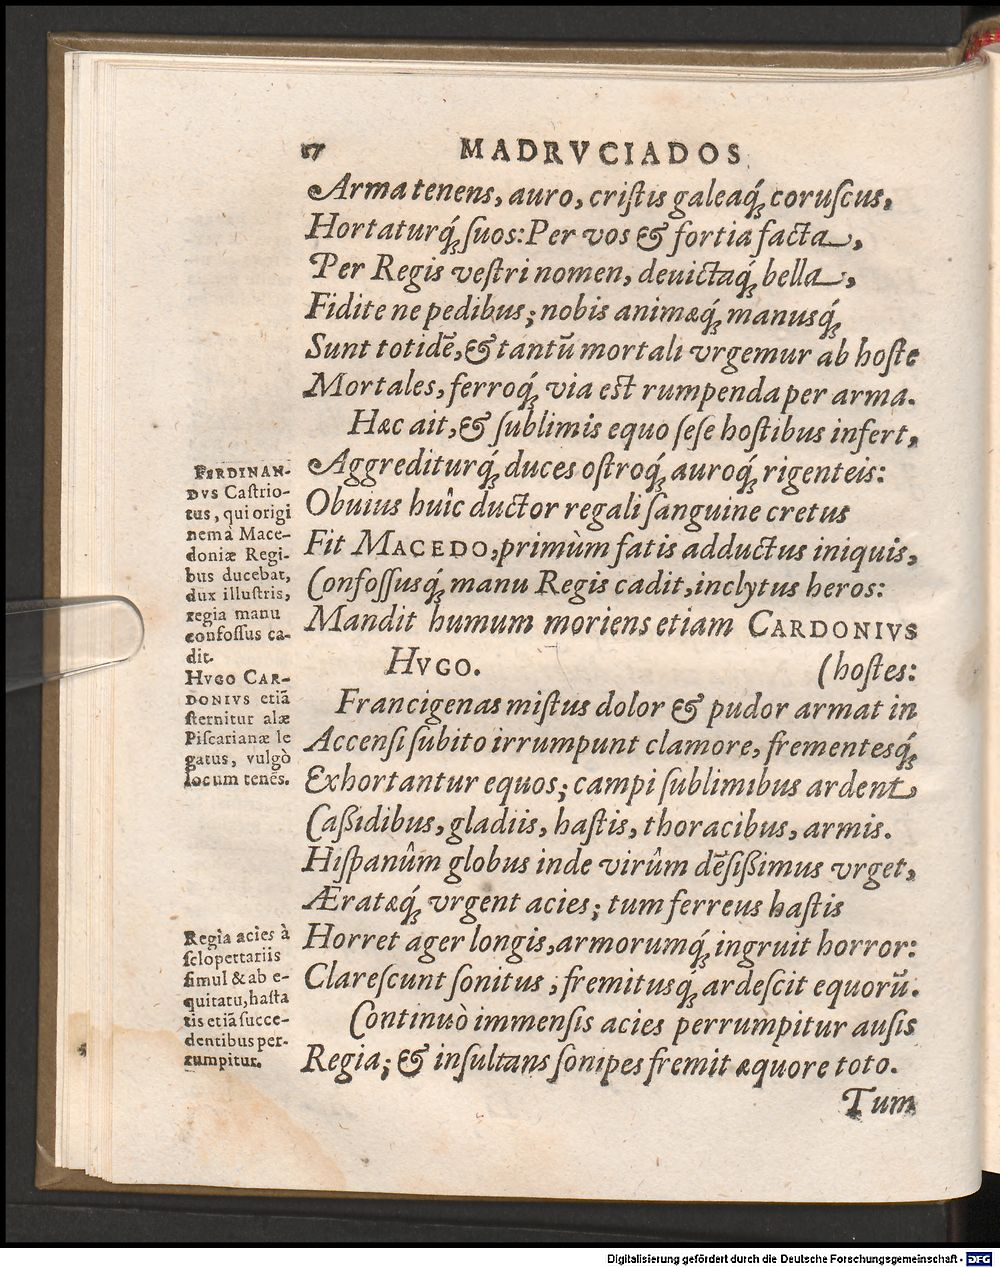 MADRVCIADOS
Arma tenens, auro, cristis galeaq́; coruscus,
Hortaturq́; suos: Per vos & fortia facta,
Per Regis vestri nomen, deuictaq́; bella,
Fidite ne pedibus; nobis animæq́; manusq́;
Sunt totidẽ, & tantũ mortali vrgemur ab hoste
Mortales, ferroq́; via est rumpenda per arma.
Hæc ait, & sublimis equo sese hostibus infert,
Aggrediturq́; duces ostroq́; auroq́; rigenteis:
Obuius huîc ductor regali sanguine cretus
Fit MACEDO, primùm fatis adductus iniquis,
Confossusq́; manu Regis cadit, inclytus heros:
Mandit humum moriens etiam CARDONIVS
HVGO. (hostes:
Francigenas mistus dolor & pudor armat in
Accensi subito irrumpunt clamore, frementesq́;
Exhortantur equos; campi sublimibus ardent
Caßidibus, gladiis, hastis, thoracibus, armis.
Hispanûm globus inde virûm dẽsißimus vrget,
Æratæq́; vrgent acies; tum ferreus hastis
Horret ager longis, armorumq́; ingruit horror:
Clarescunt sonitus, fremitusq́; ardescit equorũ.
Continuò immensis acies perrumpitur ausis
Regia; & insultans sonipes fremit æquore toto.
Tum
FERDINAN-
DVS Castrio-
tus, qui origi
nem à Mace-
doniæ Regi-
bus ducebat,
dux illustris,
regia manu
confossus ca-
dit.
HVGO CAR-
DONIVS etiã
sternitur alæ
Piscarianæ le
gatus, vulgò
locum tenẽs.
Regia acies à
sclopettariis
simul & ab e-
quitatu, hasta
tis etiã succe-
dentibus per-
rumpitur.
Digitalisierung gefördert durch die Deutsche Forschungsgemeinschaft - DFG